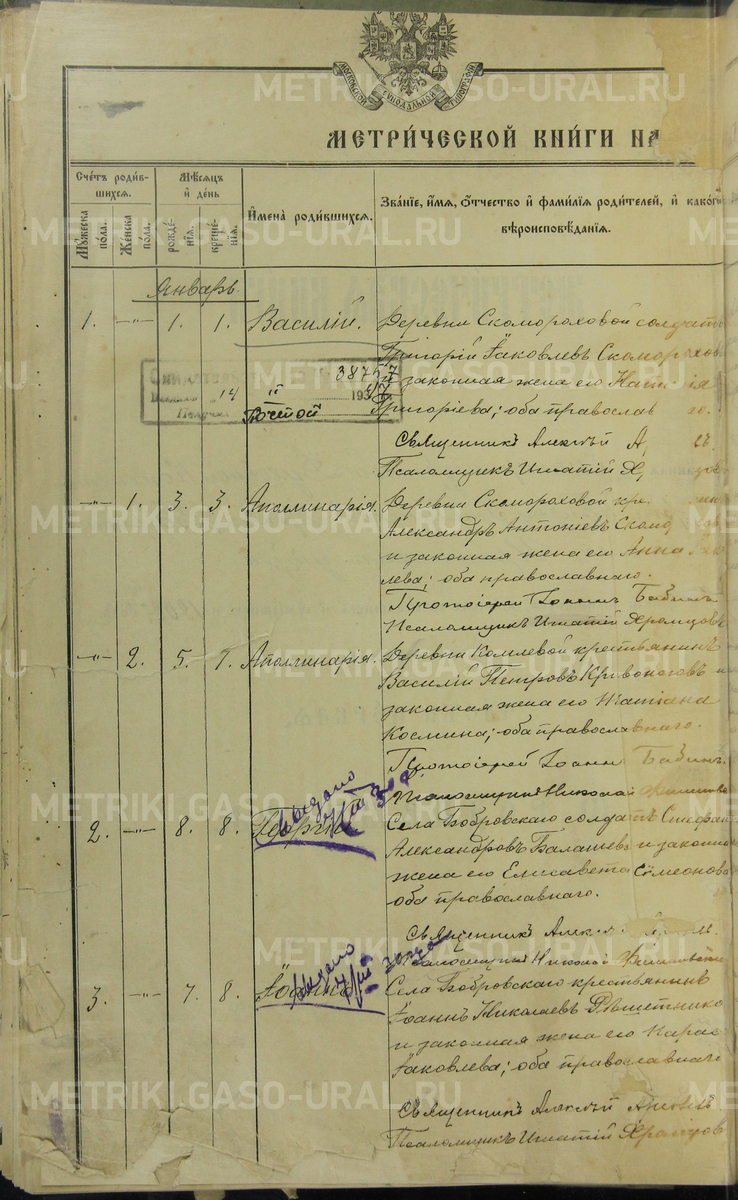 МЕТРИ́ЧЕСКОЙ КНИ́ГИ НА
Сче́тъ роди́в-
шихся.
Мѣ́сяцъ
и҆ де́нь
Мꙋ́жеска
по́ла.
Же́нска
по́ла.
рожде́-
нїя.
креще́-
нїя.
И҆мена̀ роди́вшихся.
Зва́нїе, и҆́мѧ, ѻ҆́тчество и҆ фами́лїѧ роди́телей, и҆ како́гѡ
вѣроисповѣ́данїя.
Январь.
1. —"— 1. 1. Василій. Деревни Скомороховой солдатъ
Григорій Іаковлевъ Скоморохов
и законная жена его
Григоріева; оба православ
38757
14 " 193
Почтой
Священникъ Алексѣй
Псаломщикъ Игнатій
—"— 1. 3. 3. Аполлинарія. Деревни Скомороховой кре
Александръ Антоніевъ Скомо
и законная жена его Анна
лева; оба православнаго.
Протоіерей Іоаннъ Бабинъ
Псаломщикъ Игнатій Храмцовъ
—"— 2. 5. 7. Аполлинарія. Деревни Комлевой крестьянинъ
Василій Петровъ Кривоноговъ и
законная жена его Татіана
Космина; оба православнаго.
Протоіерей Іоаннъ Бабинъ.
Псаломщикъ Николай
выдано
2. —"— 8. 8. Георгій Села Бобровскаго солдатъ Стефанъ
Александровъ Балашевъ и законна
жена его Елисавета Сѵмеонова
оба православнаго.
Священникъ Алексѣй
Псаломщикъ Николай
выдано
3. —"— 7. 8. Іоаннъ. Села Бобровскаго крестьянинъ
Іоаннъ Николаевъ Рѣшетнико
и законная жена его Парас
Іаковлева; оба православнаго
Священникъ Алексѣй
Псаломщикъ Игнатій Храмцов
METRIKI.GASO-URAL.RU